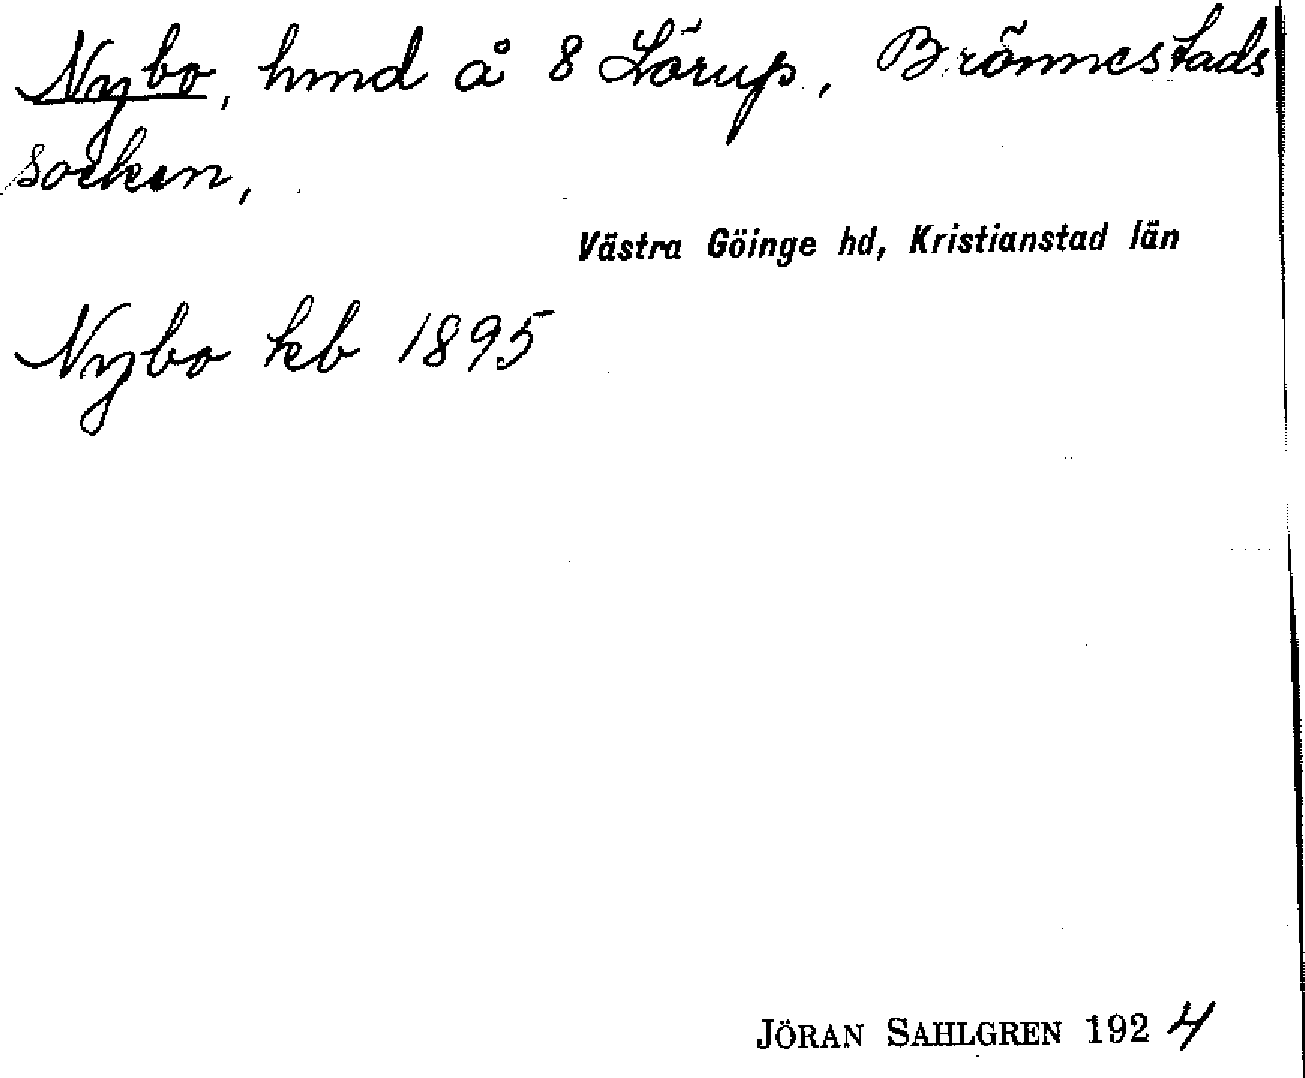 Nybo, hmd å 8 Lörup, Brönnestads
socken,
Västra Göinge hd, Kristianstad län
Nybo kb 1895
JÖRAN SAHLGREN 1924